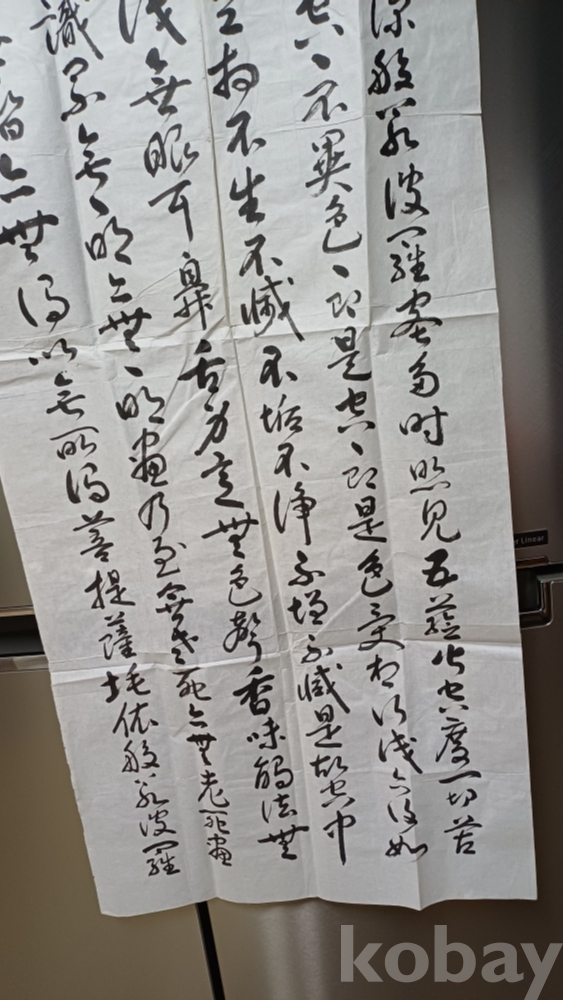 深般若波羅蜜多時照見五蘊皆空度一切苦
空、不異色、即是空、即是色受想行識亦復如
相不生不滅不垢不淨不增不減是故空中
識無眼耳鼻舌身意無色聲香味觸法無
識界無、明亦無、明盡乃至無老死亦無老死盡
智亦無得以無所得菩提薩埵依般若波羅
Linear
kobay